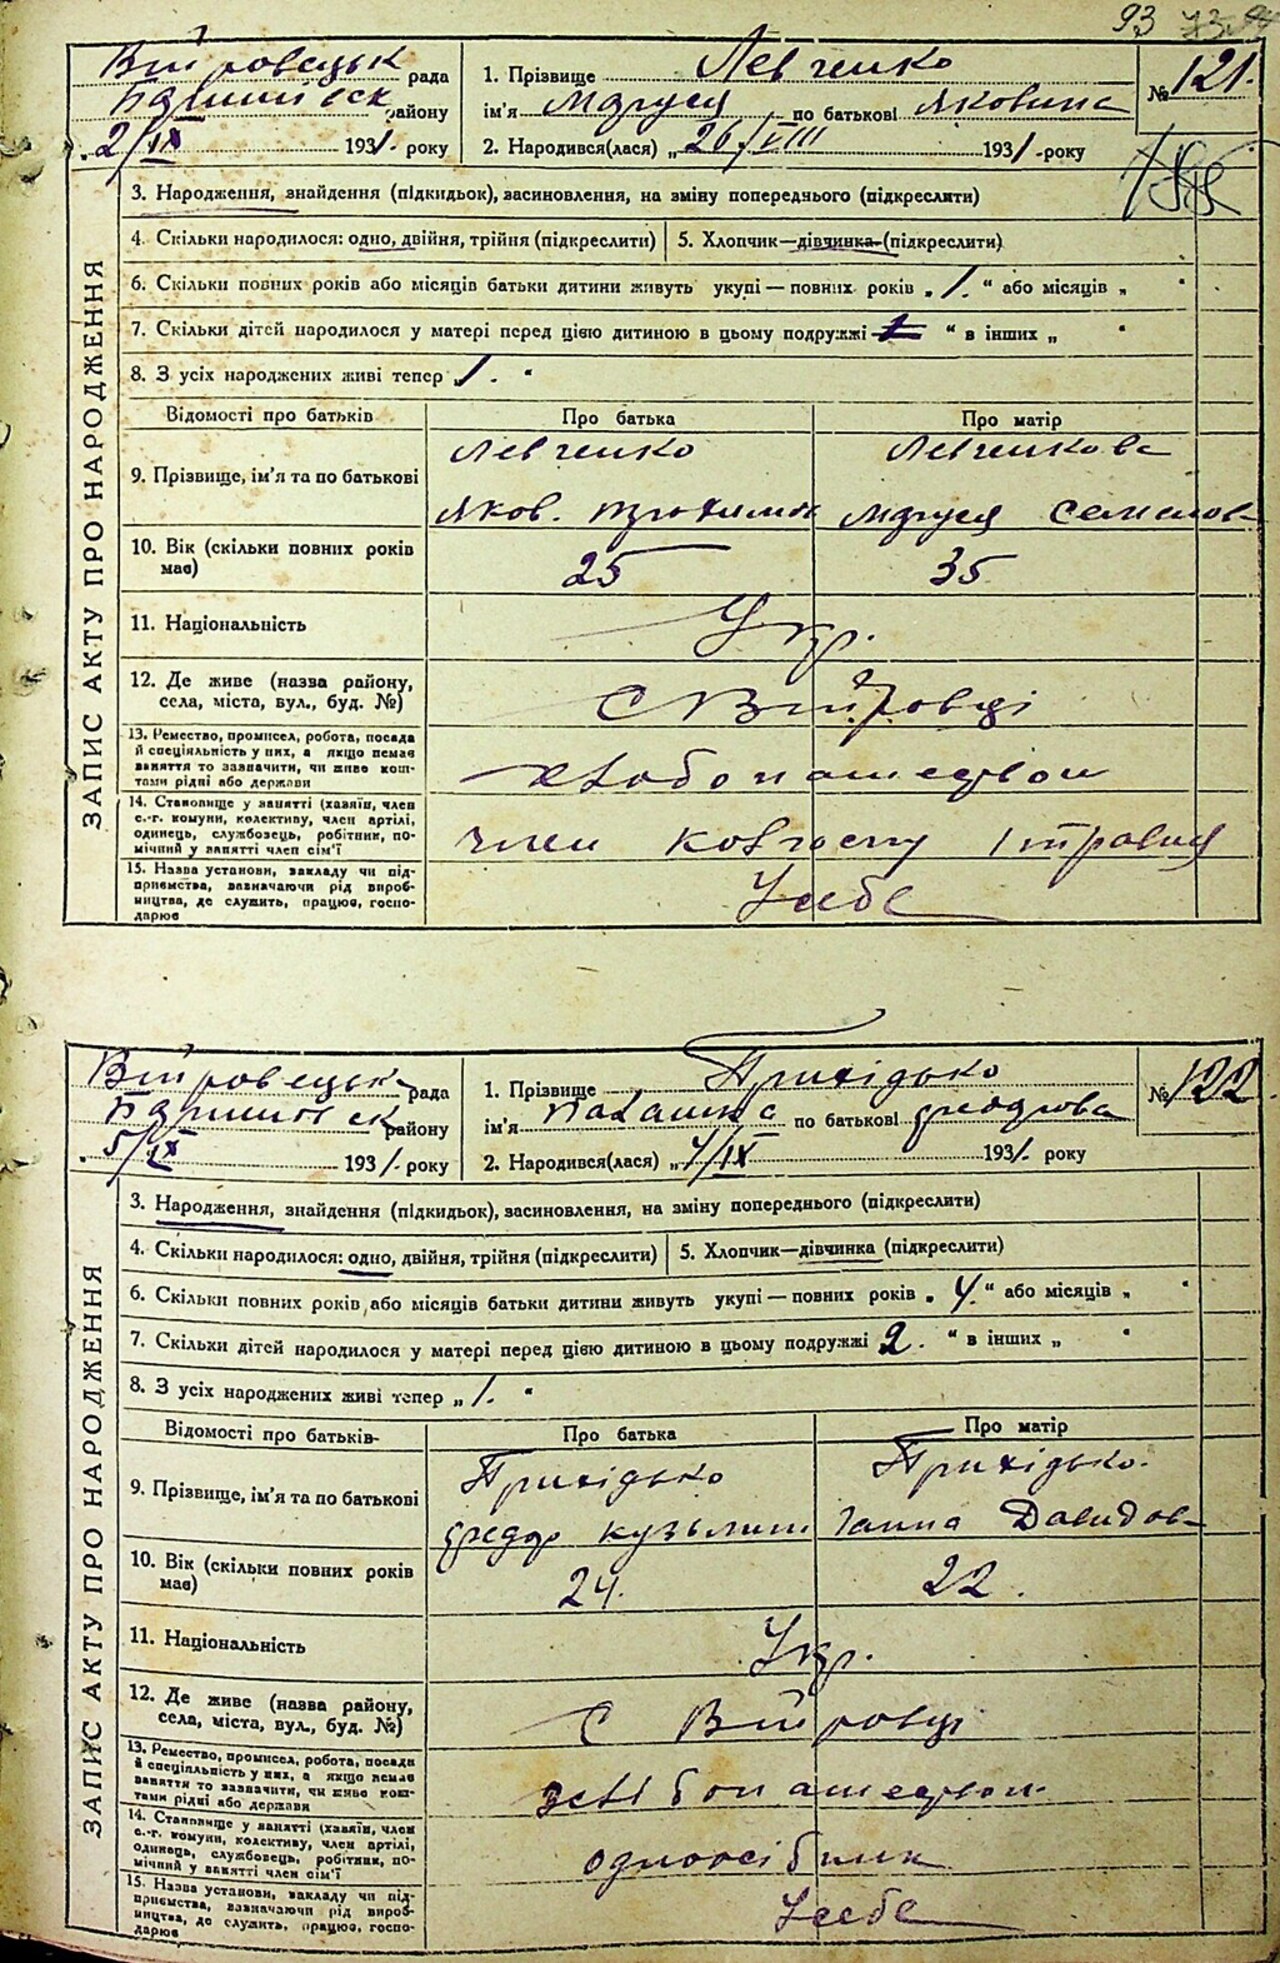 93
Війтовецьк рада
Баришівськ району
2/IX 1931. року
1. Прізвище Левченко
ім'я Маруся по батькові Яковина
2. Народився(лася) „26/VIII 1931.року
№ 121.
ЗАПИС АКТУ ПРО НАРОДЖЕННЯ
3. Народження, знайдення (підкидьок), засиновлення, на зміну попереднього (підкреслити)
4. Скільки народилося: одно, двійня, трійня (підкреслити) 5. Хлопчик—дівчинка (підкреслити)
6. Скільки повних років або місяців батьки дитини живуть укупі — повних років „ 1. “ або місяців „ “
7. Скільки дітей народилося у матері перед цією дитиною в цьому подружжі 1 “ в інших „ “
8. З усіх народжених живі тепер „ 1. “
Відомості про батьків Про батька Про матір
9. Прізвище, ім'я та по батькові
Левченко Левченкова
Яков. Маруся Семенов
10. Вік (скільки повних років має) 25 35
11. Національність Укр.
12. Де живе (назва району,
села, міста, вул., буд. №) С
13. Ремество, промисел, робота, посада
й спеціяльність у них, а якщо немає
заняття то зазначити, чи живе кош-
тами рідні або держави
14. Становище у занятті (хазяїн, член
с.-г. комуни, колективу, член артілі,
одинець, службовець, робітник, по-
мічний у занятті член сім'ї
член 1 травня
15. Назва установи, закладу чи під-
приємства, зазначаючи рід вироб-
ництва, де служить, працює, госпо-
дарює
У себе
рада
Баришівськ району
5/IX 1931. року
1. Прізвище Прихідько
ім'я Палашка по батькові Федорова
2. Народився(лася) „4/IX 1931. року
№ 122
ЗАПИС АКТУ ПРО НАРОДЖЕННЯ
3. Народження, знайдення (підкидьок), засиновлення, на зміну попереднього (підкреслити)
4. Скільки народилося: одно, двійня, трійня (підкреслити) 5. Хлопчик—дівчинка (підкреслити)
6. Скільки повних років або місяців батьки дитини живуть укупі — повних років „ 4. “ або місяців „ “
7. Скільки дітей народилося у матері перед цією дитиною в цьому подружжі 2. “ в інших „ “
8. З усіх народжених живі тепер „ 1. “
Відомості про батьків Про батька Про матір
9. Прізвище, ім'я та по батькові
Прихідько Прихідько.
Федор Ганна Давидов
10. Вік (скільки повних років має) 24. 22.
11. Національність Укр.
12. Де живе (назва району,
села, міста, вул., буд. №) С
13. Ремество, промисел, робота, посада
й спеціяльність у них, а якщо немає
заняття то зазначити, чи живе кош-
тами рідні або держави
14. Становище у занятті (хазяїн, член
с.-г. комуни, колективу, член артілі,
одинець, службовець, робітник, по-
мічний у занятті член сім'ї
одноосібник
15. Назва установи, закладу чи під-
приємства, зазначаючи рід вироб-
ництва, де служить, працює, госпо-
дарює
У себе